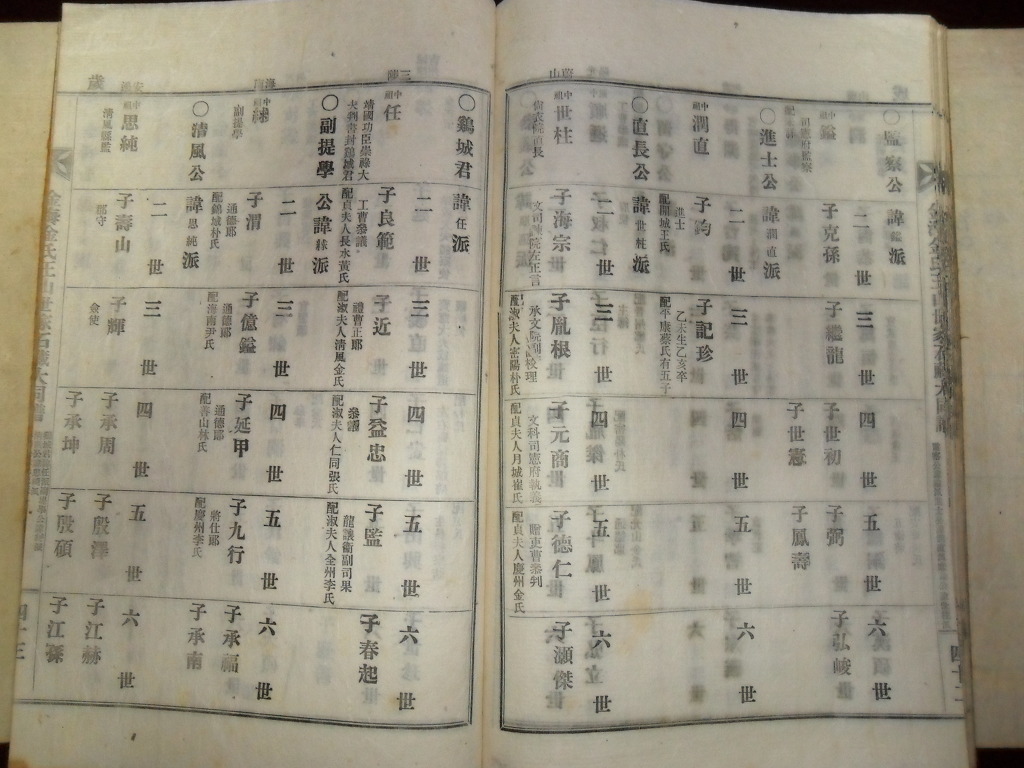 ○監察公
諱鎰派
二世
三世
四世
五世
六世
中祖
鎰
司憲府監察
子克孫
子繼龍
子世初
子弼
子弘峻
子世憲
子鳳壽
○進士公
諱潤直派
二世
三世
四世
五世
六世
中祖
潤直
子鈞
進士
配開城王氏
子記珍
乙未生乙亥卒
配平康蔡氏有五子
○直長公
諱世柱派
二世
三世
四世
五世
六世
中祖
世柱
子海宗
文司諫院左正言
子胤根
配淑夫人密陽朴氏
子元商
文科司憲府執義
配貞夫人月城崔氏
子德仁
贈吏曹參判
配貞夫人慶州金氏
子灝傑
蔚山
四十二
三陟
海南
安
歲
○鷄城君
諱任派
二世
三世
四世
五世
六世
中祖
任
靖國功臣崇祿大
夫判書封鷄城君
子良範
工曹參議
配貞夫人長水黃氏
子近
禮曹正郎
配淑夫人清風金氏
子益忠
參議
配淑夫人仁同張氏
子監
龍議衛副司果
配淑夫人全州李氏
子春起
○副提學
公諱絿派
二世
三世
四世
五世
六世
中祖
絿
副提學
子渭
通德郎
配錦城朴氏
子億鎰
通德郎
配海南尹氏
子延甲
通德郎
配善山林氏
子九行
將仕郎
配慶州李氏
子承福
子承南
○清風公
諱思純派
二世
三世
四世
五世
六世
中祖
思純
清風縣監
子壽山
郡守
子輝
僉使
子承周
子殷澤
子江赫
子承坤
子殷碩
子江孫
四十三